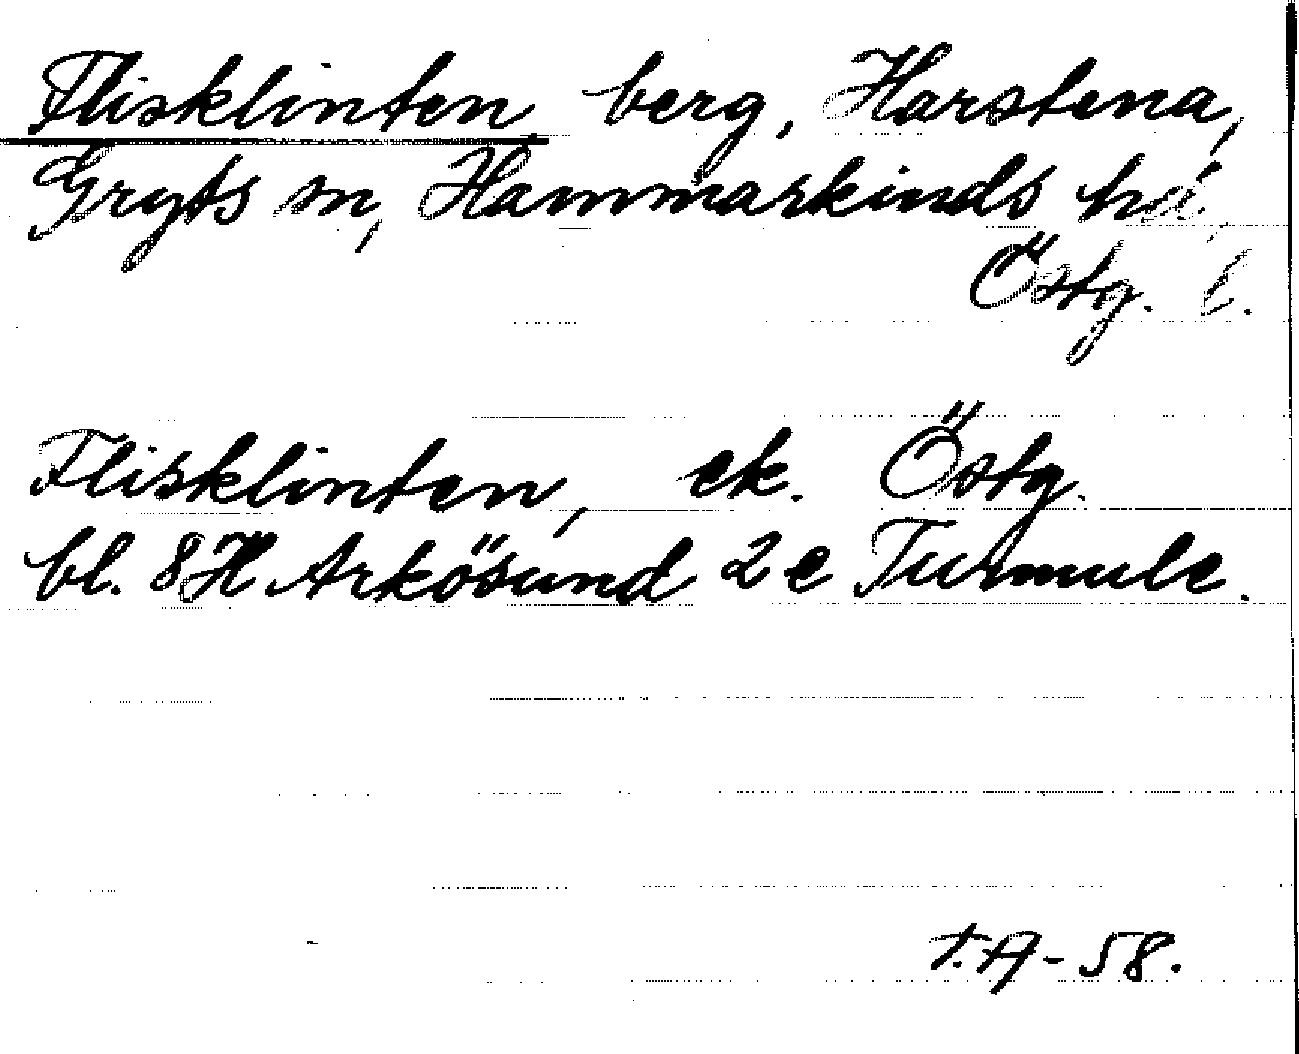 Flisklinten, berg, Harstena,
Gryts sn, Hammarkinds hd,
Östg. l.
Flisklinten, ek. Östg.
bl. 8H Arkösund 2 e Turmule.
T.A-58.